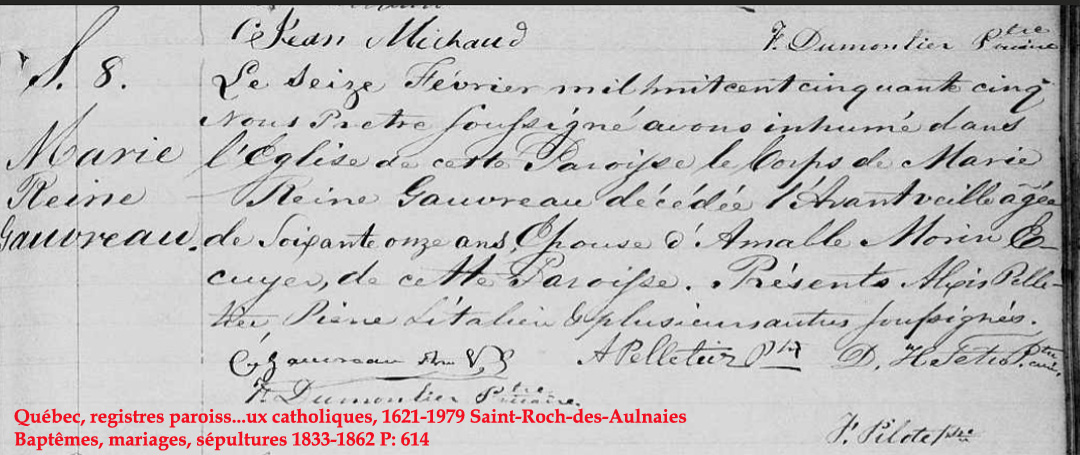 Jean Michaud F. Dumontier Ptre
S. 8.
Le seize Février mil huit cent cinquante cinq
Nous Pretre soussigné avons inhumé dans
Marie l'Eglise de cette Paroisse le Corps de Marie
Reine Reine Gauvreau décédée l'Avant veille âgée
Gauvreau. de soixante onze ans, Epouse d'Amable Morin E-
cuyer, de cette Paroisse. Présents Alexis Pelle-
tier Pierre L'italien & plusieurs autres soussignés.
Gauvreau A Pelletier Ptre D. H. Tetu Ptre
F. Dumontier Ptre
F. Pilote Ptre
Québec, registres paroiss...ux catholiques, 1621-1979 Saint-Roch-des-Aulnaies
Baptêmes, mariages, sépultures 1833-1862 P: 614